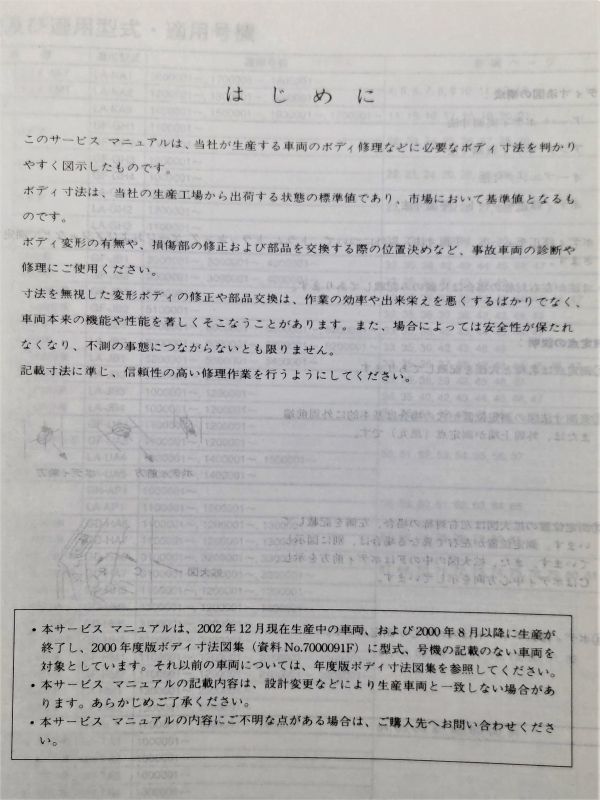 はじめに
このサービス マニュアルは、当社が生産する車両のボディ修理などに必要なボディ寸法を判かり
やすく図示したものです。
ボディ寸法は、当社の生産工場から出荷する状態の標準値であり、市場において基準値となるも
のです。
ボディ変形の有無や、損傷部の修正および部品を交換する際の位置決めなど、事故車両の診断や
修理にご使用ください。
寸法を無視した変形ボディの修正や部品交換は、作業の効率や出来栄えを悪くするばかりでなく、
車両本来の機能や性能を著しくそこなうことがあります。また、場合によっては安全性が保たれ
なくなり、不測の事態につながらないとも限りません。
記載寸法に準じ、信頼性の高い修理作業を行うようにしてください。
• 本サービス マニュアルは、2002年12月現在生産中の車両、および2000年8月以降に生産が
終了し、2000年度版ボディ寸法図集（資料No.7000091F）に型式、号機の記載のない車両を
対象としています。それ以前の車両については、年度版ボディ寸法図集を参照してください。
• 本サービス マニュアルの記載内容は、設計変更などにより生産車両と一致しない場合があ
ります。あらかじめご了承ください。
• 本サービス マニュアルの内容にご不明な点がある場合は、ご購入先へお問い合わせくださ
い。